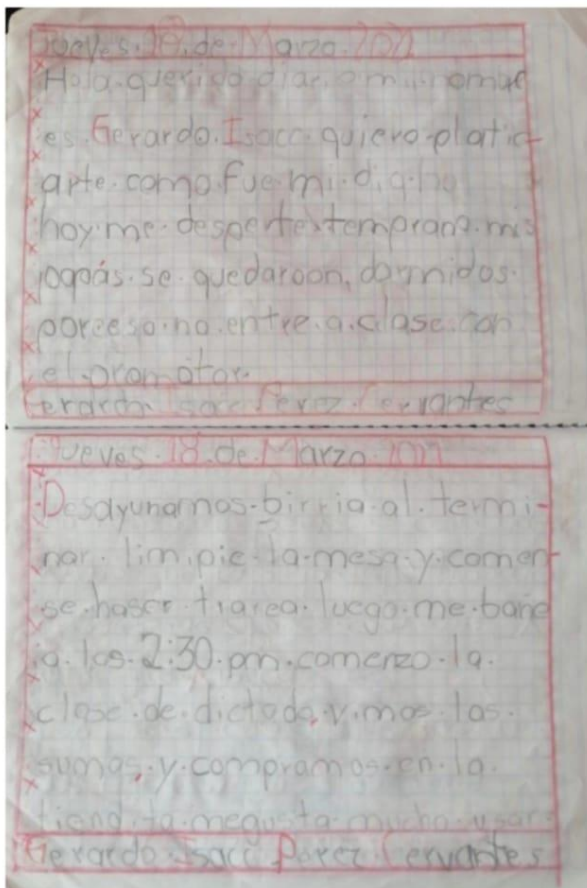 Jueves.18.de.Marzo.202
Hola.querido.diario.mi.nombre
es.Gerardo.Isacc.quiero.platic
arte.como.fue.mi.dia.
hoy.me.desperte.temprano.mis
papás.se.quedaroon.dormidos.
poreeso.no.entre.a.clase.con
el.promotor.
Gerardo Isacc Perez Cervantes
Jueves.18.de.Marzo.202
Desayunamos.birria.al.termi-
nar.limpie.la.mesa.y.comen
se.haser.tiarea.luego.me.bañe
a.las.2:30.pm.comenzo.la.
clase.de.dictado,vimos.las.
sumas,.y.compramos.en.la.
tiend.ta.megusta.mucho.usar
Gerardo.Isacc Perez.Cervantes